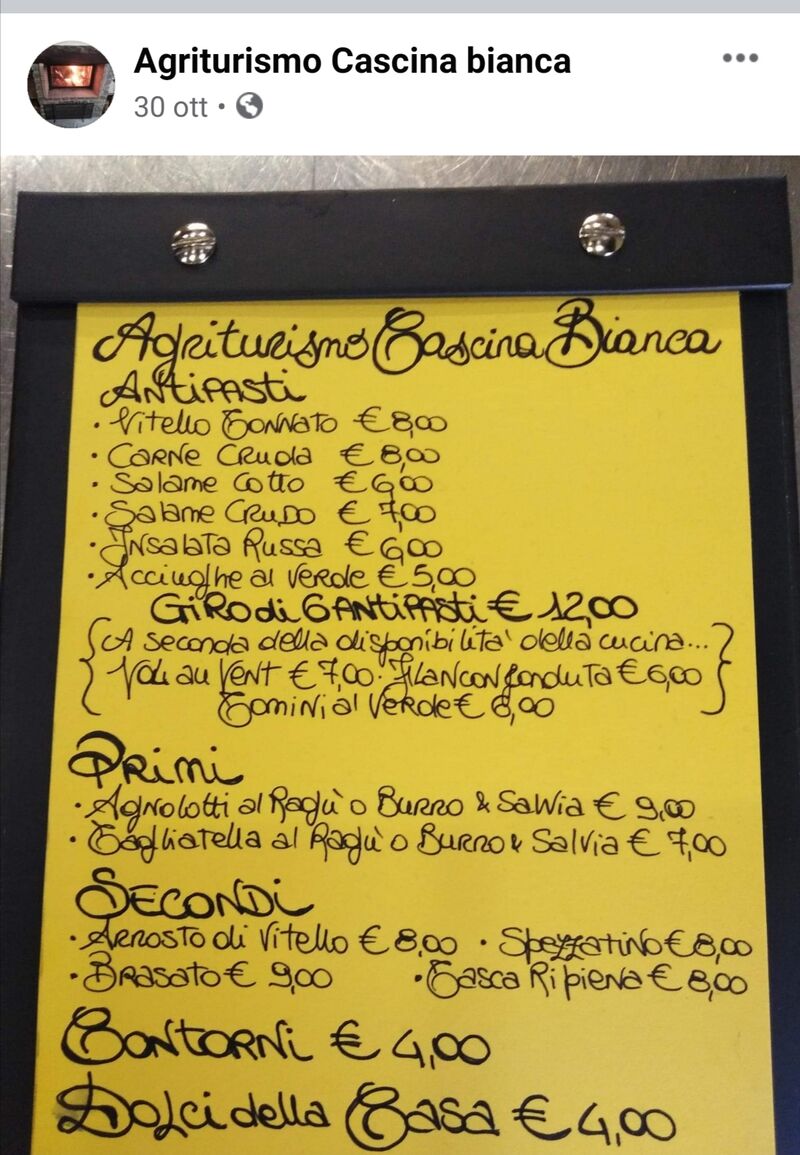 Agriturismo Cascina bianca
30 ott •
Agriturismo Cascina Bianca
Antipasti
• Vitello Tonnato € 8,00
• Carne Cruda € 8,00
• Salame Cotto € 6,00
• Salame Crudo € 7,00
• Insalata Russa € 6,00
• Acciughe al verde € 5,00
Giro di 6 Antipasti € 12,00
{A seconda della disponibilità della cucina...
Vol au Vent € 7,00 • Flan con fonduta € 6,00
Tomini al Verde € 6,00}
Primi
• Agnolotti al Ragù o Burro & Salvia € 9,00
• Tagliatella al Ragù o Burro & Salvia € 7,00
Secondi
• Arrosto di Vitello € 8,00 • Spezzatino € 8,00
• Brasato € 9,00 • Tasca Ripiena € 8,00
Contorni € 4,00
Dolci della Casa € 4,00